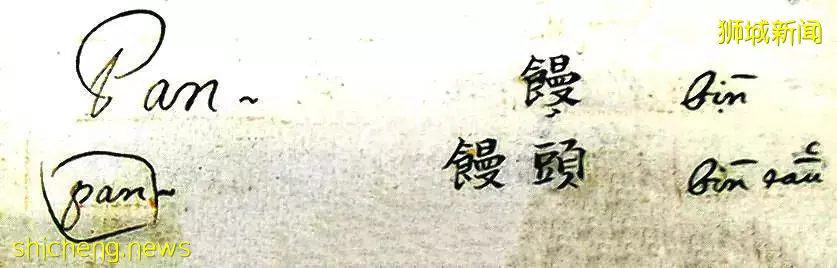 狮城新闻
Pan ~ 饅 bīn
pan ~ 饅頭 bīn
shicheng.news